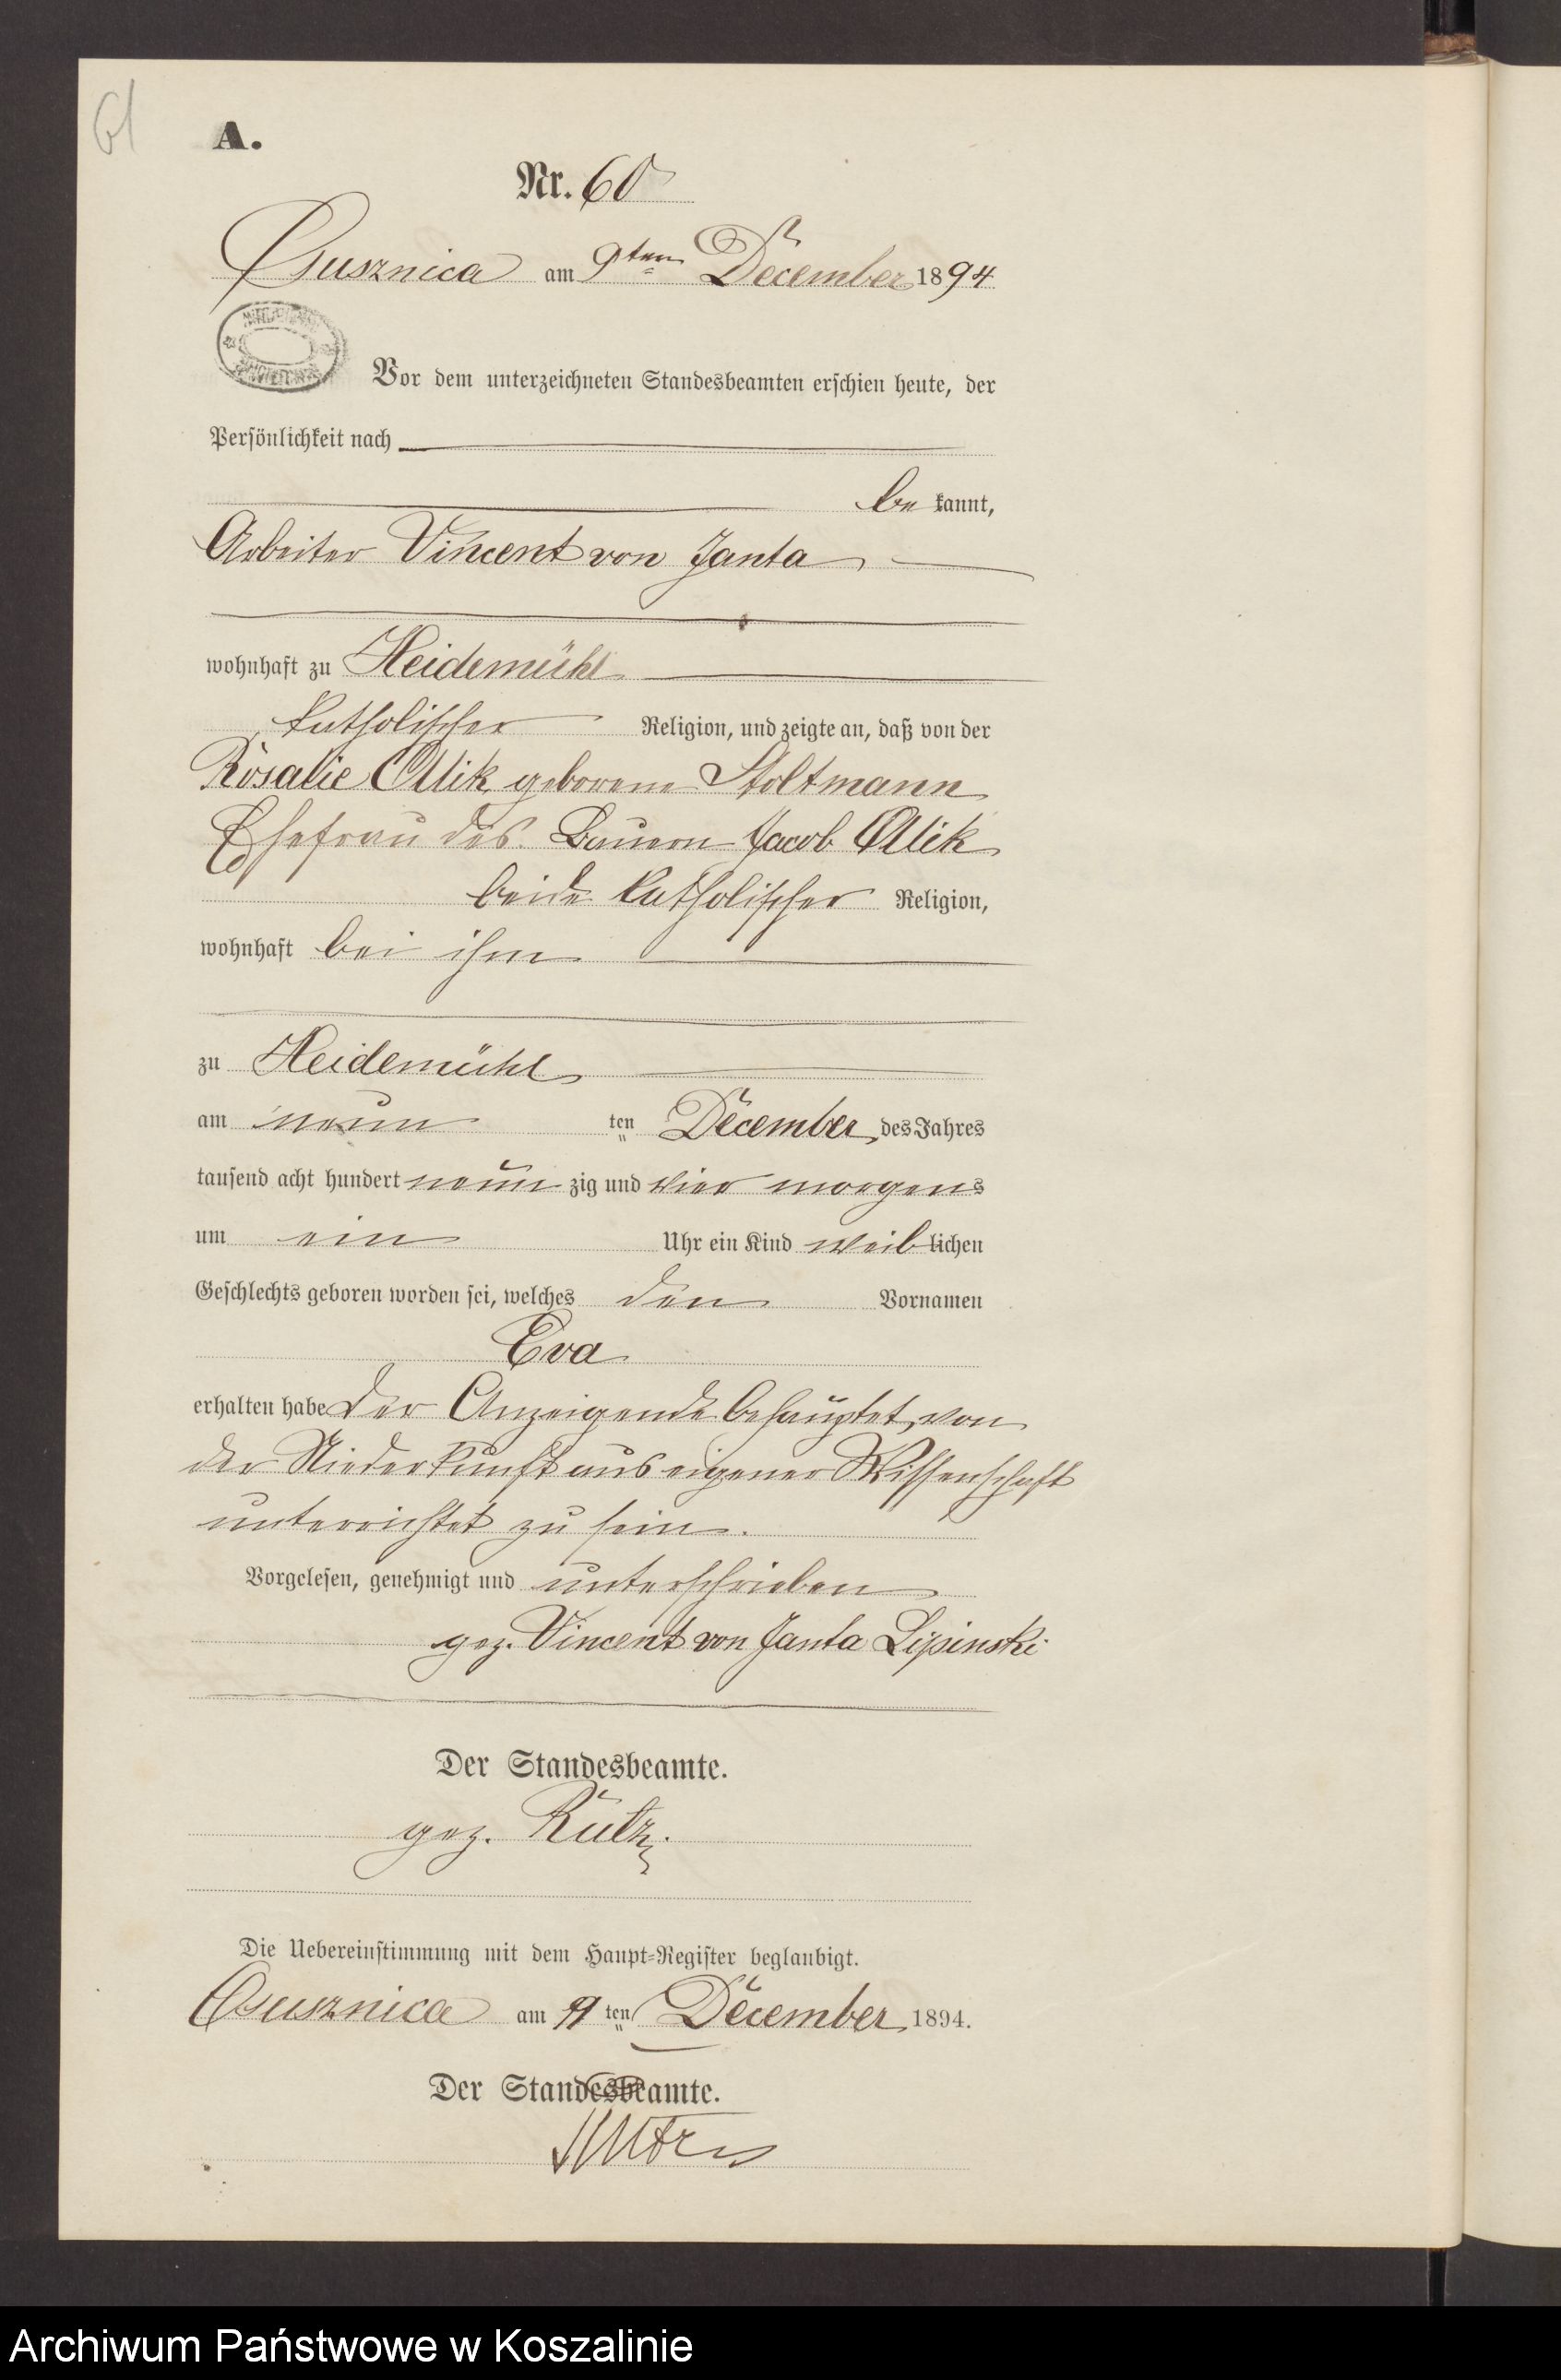 61
A.
Nr. 60
Ousznica am 9ten December 1894
Vor dem unterzeichneten Standesbeamten erschien heute, der
Persönlichkeit nach
be kannt,
Arbeiter Vincent von Janta
wohnhaft zu Heidemühl
katholischer Religion, und zeigte an, daß von der
Rosalie Ollik geborene Stoltmann
Ehefrau des Bauern Jacob Ollik
beide katholischer Religion,
wohnhaft bei ihm
zu Heidemühl
am neun ten December des Jahres
tausend acht hundert neun zig und vier morgens
um ein Uhr ein Kind weiblichen
Geschlechts geboren worden sei, welches den Vornamen
Eva
erhalten habe Der Anzeigende behauptet, von
der Niederkunft aus eigener Wissenschaft
unterrichtet zu sein.
Vorgelesen, genehmigt und unterschrieben
gez. Vincent von Janta Lipinski
Der Standesbeamte.
gez. Kutz.
Die Uebereinstimmung mit dem Haupt-Register beglaubigt.
Ousznica am 9 ten December 1894.
Der Standesbeamte.
Kutz
Archiwum Państwowe w Koszalinie